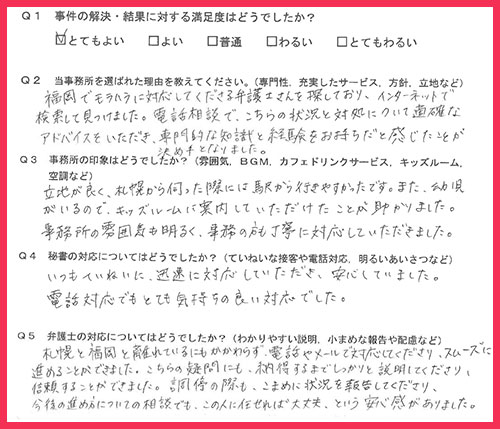 Q1 事件の解決・結果に対する満足度はどうでしたか？
☑とてもよい □よい □普通 □わるい □とてもわるい
Q2 当事務所を選ばれた理由を教えてください。（専門性，充実したサービス，方針，立地など）
福岡でモラハラに対応してくださる弁護士さんを探しており、インターネットで
検索して見つけました。電話相談で、こちらの状況と対処について適確な
アドバイスをいただき、専門的な知識と経験をお持ちだと感じたことが
決め手となりました。
Q3 事務所の印象はどうでしたか？（雰囲気，BGM，カフェドリンクサービス，キッズルーム，
空調など）
立地が良く、札幌から伺った際には駅から行きやすかったです。また、幼児
がいるので、キッズルームに案内していただけたことが助かりました。
事務所の雰囲気も明るく、事務の方も丁寧に対応していただきました。
Q4 秘書の対応についてはどうでしたか？（ていねいな接客や電話対応，明るいあいさつなど）
いつもていねいに、迅速に対応していただき、安心していました。
電話対応でもとても気持ちの良い対応でした。
Q5 弁護士の対応についてはどうでしたか？（わかりやすい説明，小まめな報告や配慮など）
札幌と福岡と離れているにもかかわらず、電話やメールで対応してくださり、スムーズに
進めることができました。こちらの疑問にも、納得するまでしっかりと説明してくださり、
信頼することができました。調停の際も、こまめに状況を報告してくださり、
今後の進め方についての相談でも、この人に任せれば大丈夫、という安心感がありました。